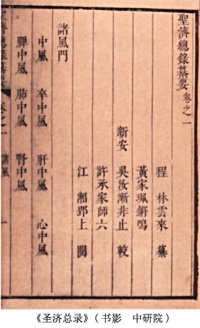 聖濟總錄纂要 卷之一
新安
程 林雲來 纂
黃家珮錦鳴
吳汝漸非止 較
許承家師六
江 湘郢上 閱
諸風門
中風 卒中風 肝中風 心中風
脾中風 肺中風 腎中風
《圣济总录》(书影 中研院)